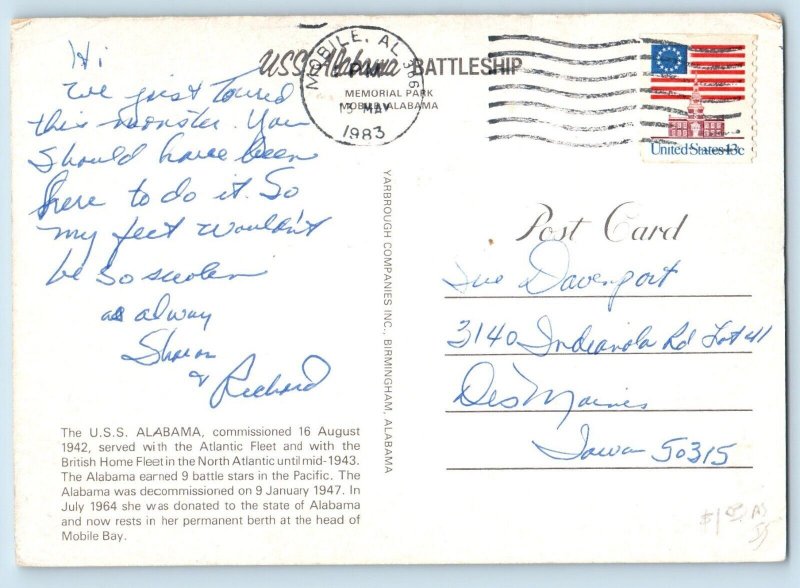 Hi
We just toured
this monster. You
should have been
here to do it. So
my feet wouldn't
be so swolen
as alway
Sharon
& Richard
The U.S.S. ALABAMA, commissioned 16 August
1942, served with the Atlantic Fleet and with the
British Home Fleet in the North Atlantic until mid-1943.
The Alabama earned 9 battle stars in the Pacific. The
Alabama was decommissioned on 9 January 1947. In
July 1964 she was donated to the state of Alabama
and now rests in her permanent berth at the head of
Mobile Bay.
USS Alabama BATTLESHIP
MEMORIAL PARK
MOBILE, ALABAMA
MOBILE, AL 366
PM
19 MAY
1983
YARBROUGH COMPANIES INC., BIRMINGHAM, ALABAMA
United States 13c
Post Card
Sue Davenport
3140 Indianola Rd Lot 41
Des Moines
Iowa 50315
$1.00 AS
IS